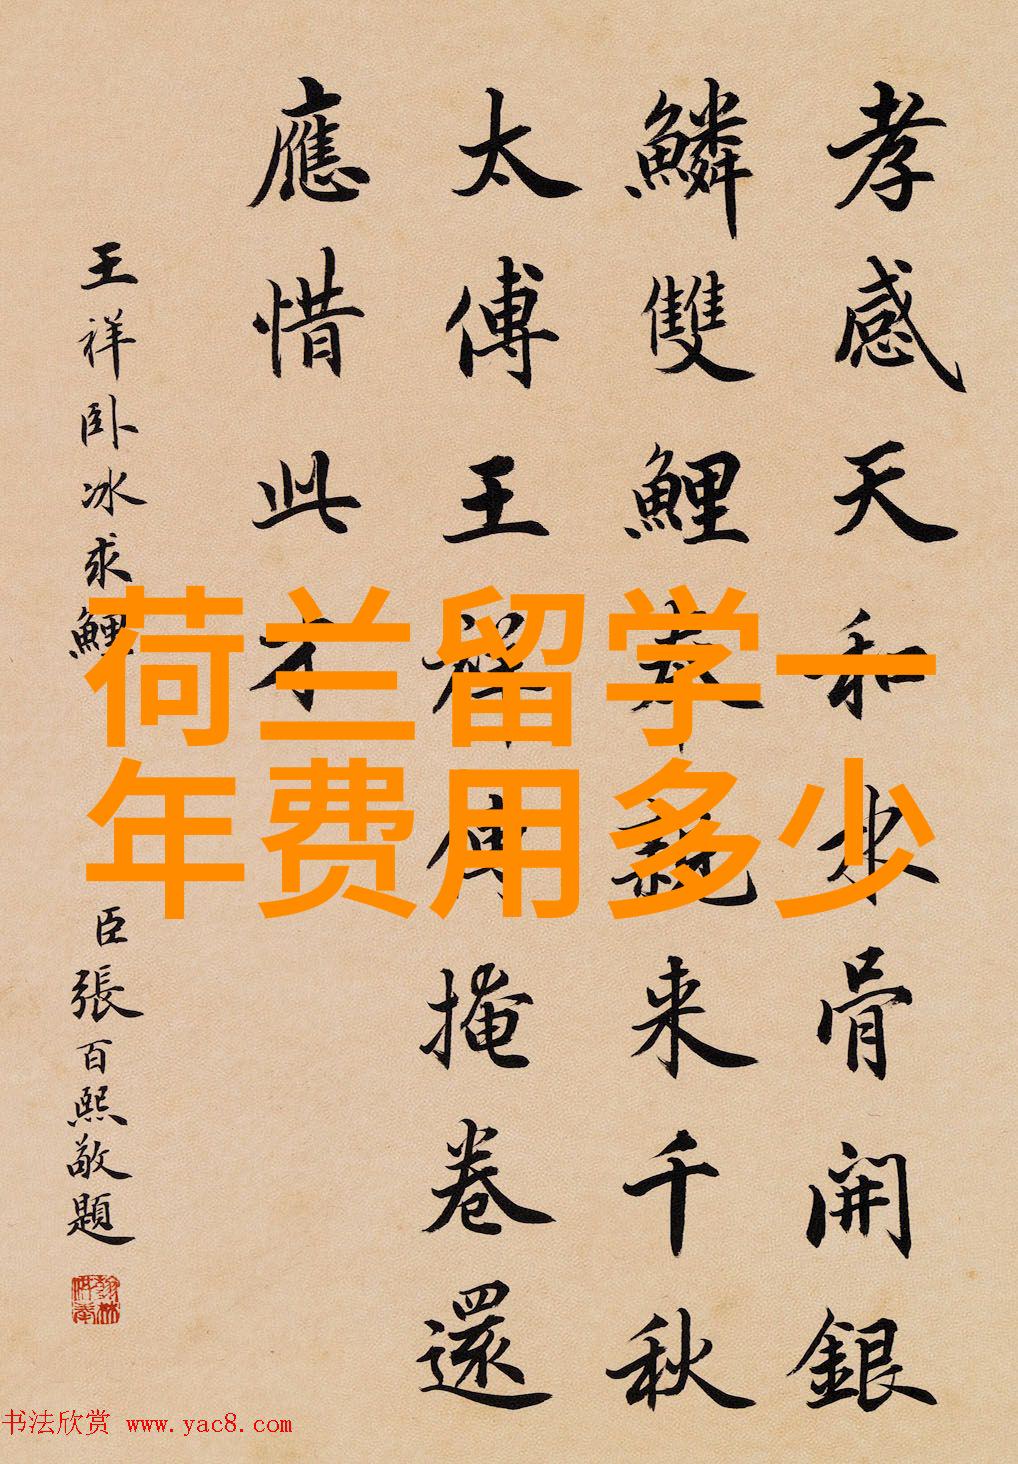 孝感天和氷骨開銀
鱗雙鯉親来千秋
太傅王祥掩卷還
應惜此才
王祥卧冰求鯉
臣張百熙敬題
荷兰留学一
年费用多少
书法欣赏 www.yac8.com